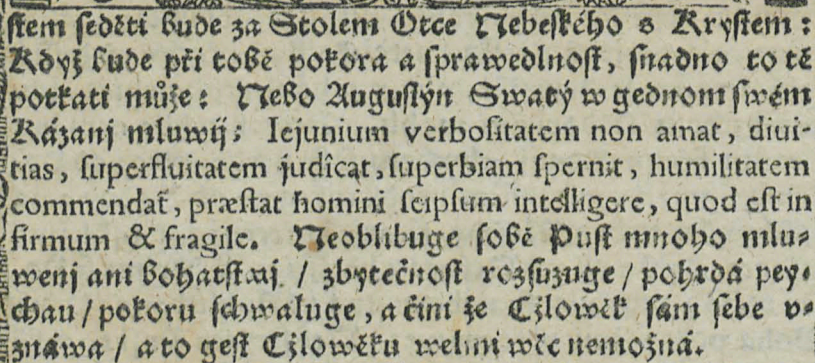 stem seděti bude za Stolem Otce Nebeského s Krystem:
Když bude při tobě pokora a sprawedlnost, snadno to tě
potkati může: Nebo Augustýn Swatý w gednom swém
Kázanj mluwij: Iejunium verbositatem non amat, divi-
tias, superfluitatem judîcat, superbiam spernit, humilitatem
commendat, præstat homini seipsum intelligere, quod est in
firmum & fragile. Neoblibuge sobě Pust mnoho mlu-
wenj ani bohatstwj / zbytečnost rozsuzuge / pohrdá pey-
chau / pokoru schwaluge, a činí že Cżlowěk sám sebe v-
znáwa / a to gest Cżlowěku welmi wěc nemožná.